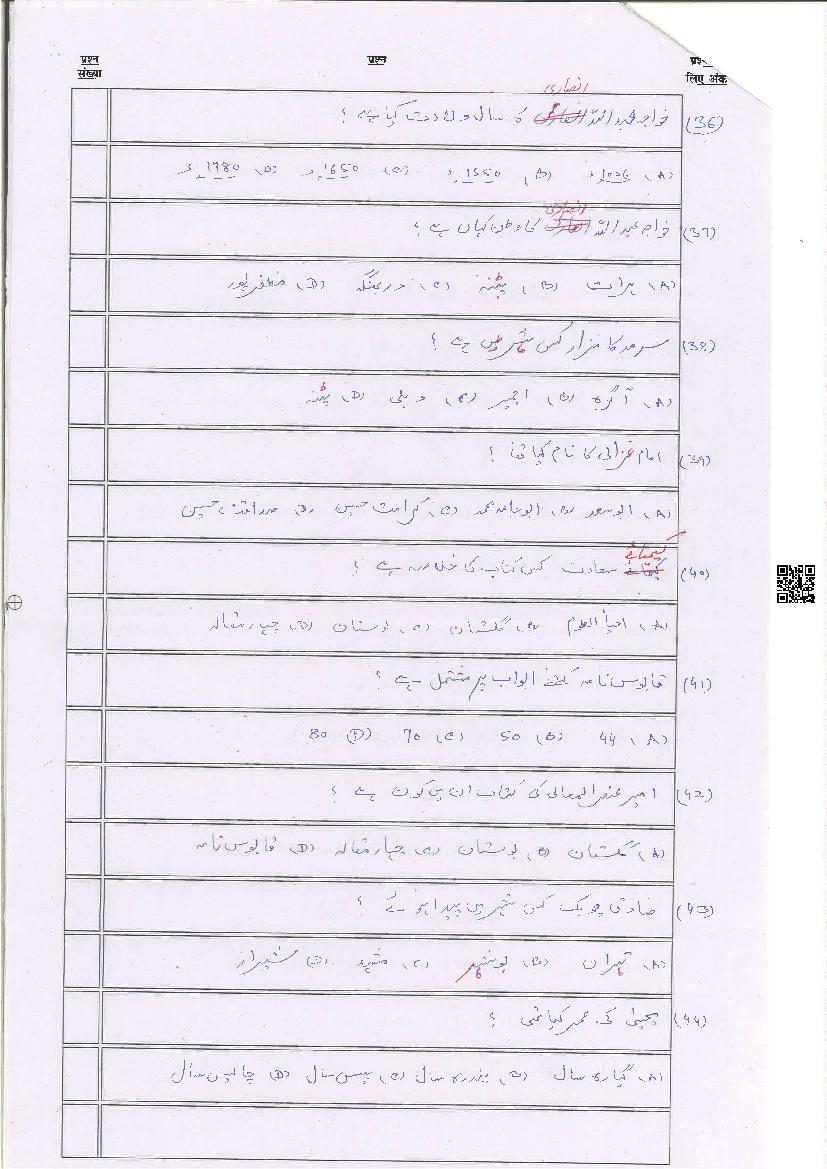 प्रश्न संख्या प्रश्न प्रश्न लिए अंक
انصاری
(36) خواجہ عبد اللہ کا سال ولادت کیا ہے ؟
(A) 1006ء (B) 1550ء (C) 1650ء (D) 1780ء
انصاری
(37) خواجہ عبد اللہ کا وطن کہاں ہے ؟
(A) ہرات (B) پٹنہ (C) دربھنگہ (D) مظفرپور
(38) سرمد کا مزار کس شہر میں ہے ؟
(A) آگرہ (B) اجمیر (C) دہلی (D) پٹنہ
(39) امام غزالی کا نام کیا تھا ؟
(A) ابوسعد (B) ابوحامد محمد (C) کرامت حسین (D) صداقت حسین
کیمیائے
(40) سعادت کس کتاب کا خلاصہ ہے ؟
(A) احیأ العلوم (B) گلستان (C) بوستان (D) چہار مقالہ
(41) قابوس نامہ کتنے ابواب پر مشتمل ہے ؟
(A) 44 (B) 50 (C) 70 (D) 80
(42) امیر عنصرالمعالی کی کتاب ان میں کون ہے ؟
(A) گلستان (B) بوستان (C) چہار مقالہ (D) قابوس نامہ
(43) صادق چوبک کس شہر میں پیدا ہوئے ؟
(A) تہران (B) بوشہر (C) مشہد (D) شیراز
(44) یحیٰی کی عمر کیا تھی ؟
(A) گیارہ سال (B) پندرہ سال (C) بیس سال (D) چالیس سال